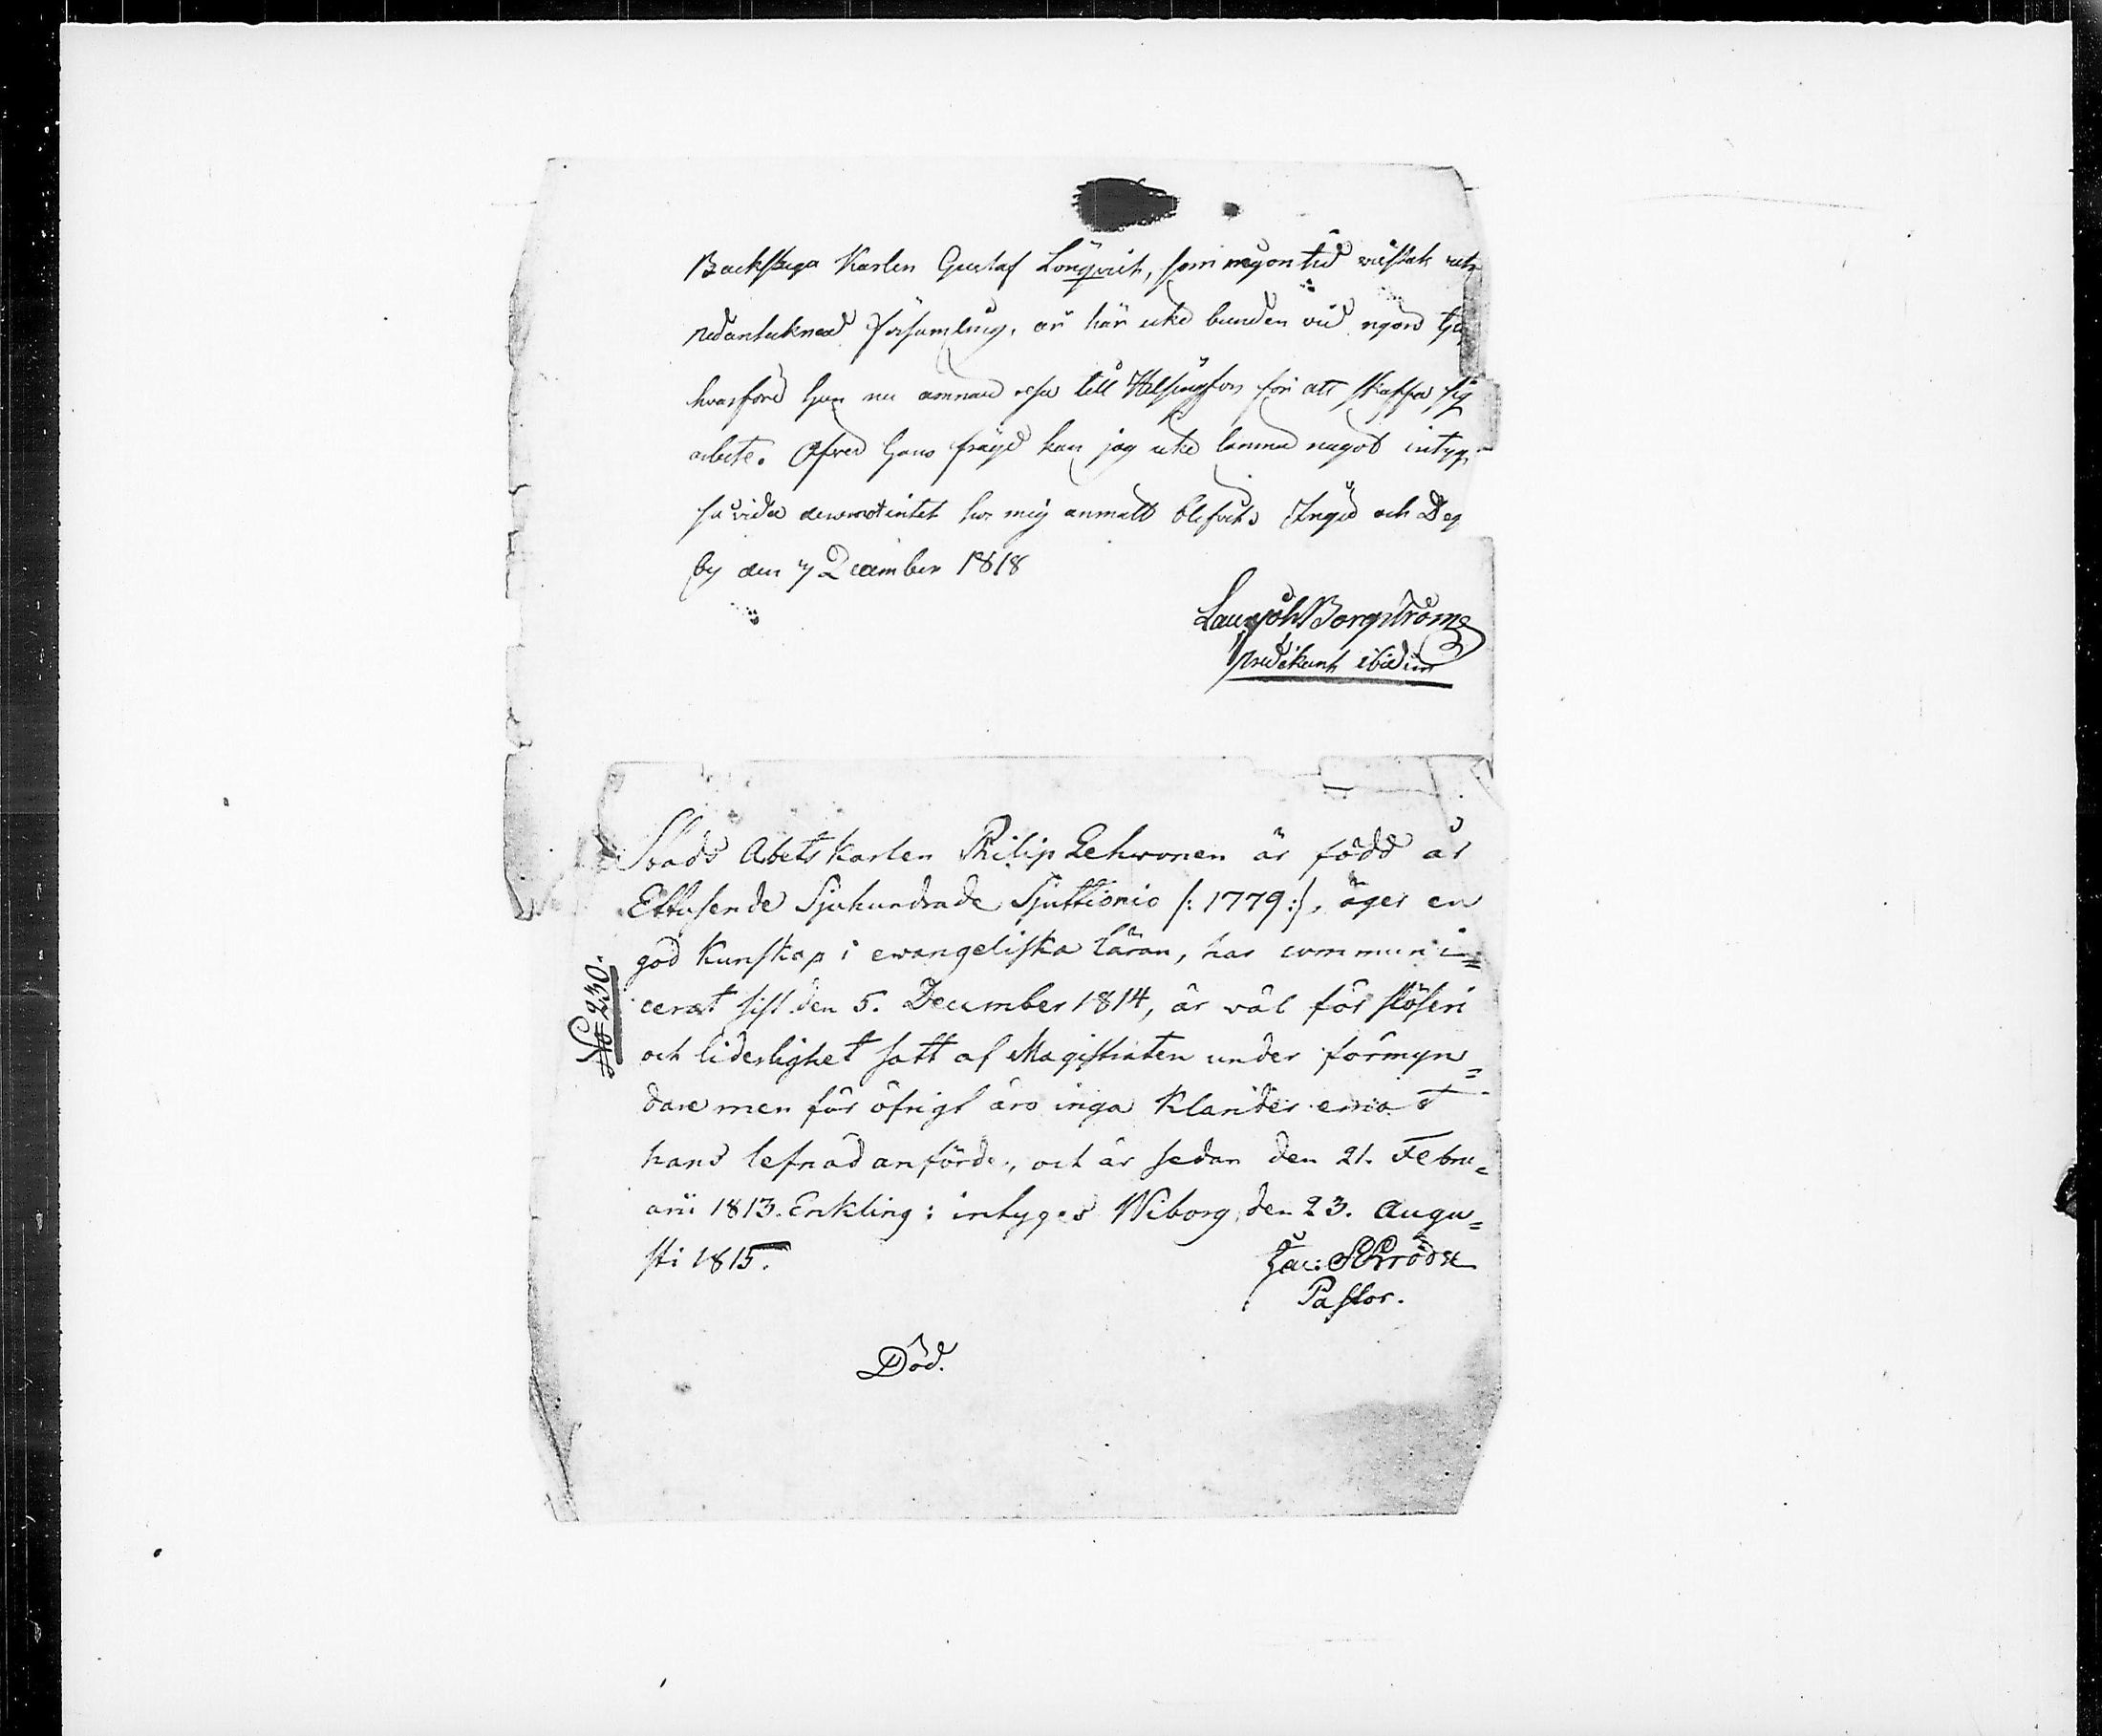 Backstuga Karlen Gustaf Lönqvist, som någon tid vistats uti
nedantecknad församling, är här icke bunden vid någon
hvarföre han nu ämnar resa till Helsingfors för att skaffa sig
arbete. Öfver hans frägd kan jag icke lemna något intyg,
så vida deremot intet hos mig anmält blifvit. Ingå och Deg
by den 7 December 1818
Laur Joh Borgström
Predikant ibidem
Stads Abets Karlen Philip Lehwonen är född år
Ettusende Sjuhundrade Sjuttionio /: 1779 :/, äger en
god Kunskap i ewangeliska läran, har communi=
cerat sist den 5. December 1814, är wäl för slöseri
och liderlighet satt af Magistraten under förmyn=
dare men för öfrigt äro inga Klander emot
hans lefnad anförde, och är sedan den 21. Febru=
arii 1813. Enkling: intyges Wiborg, den 23. Augu=
sti 1815.
Jac: Schröder
Pastor.
No 230.
Död.